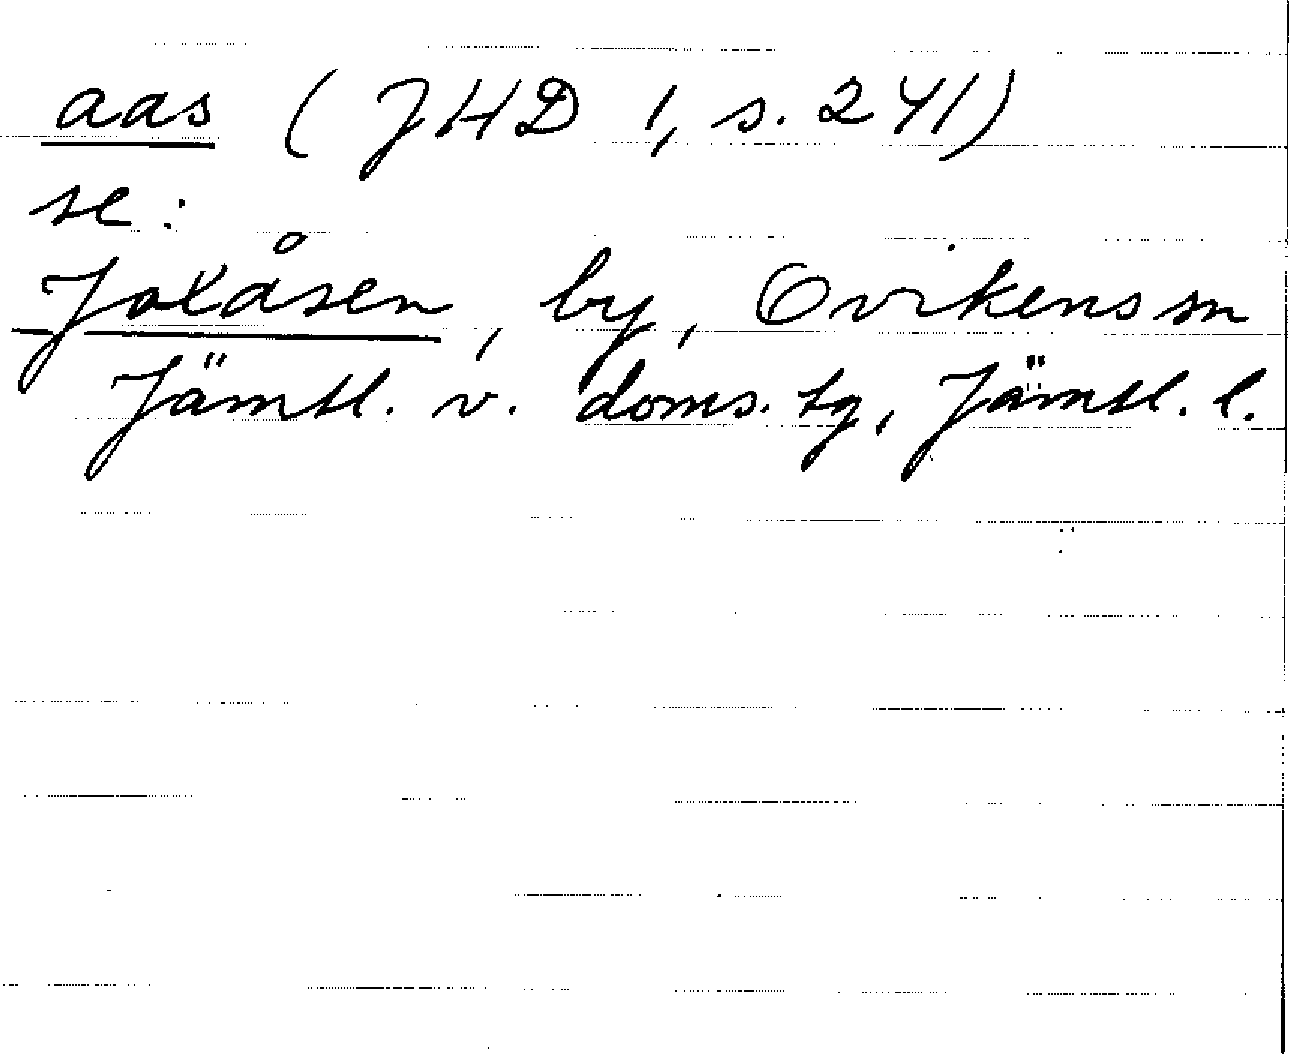 aas (JHD 1, s. 241)
se:
Joxåsen, by, Ovikens sn
Jämtl. v. doms. tg, Jämtl. l.